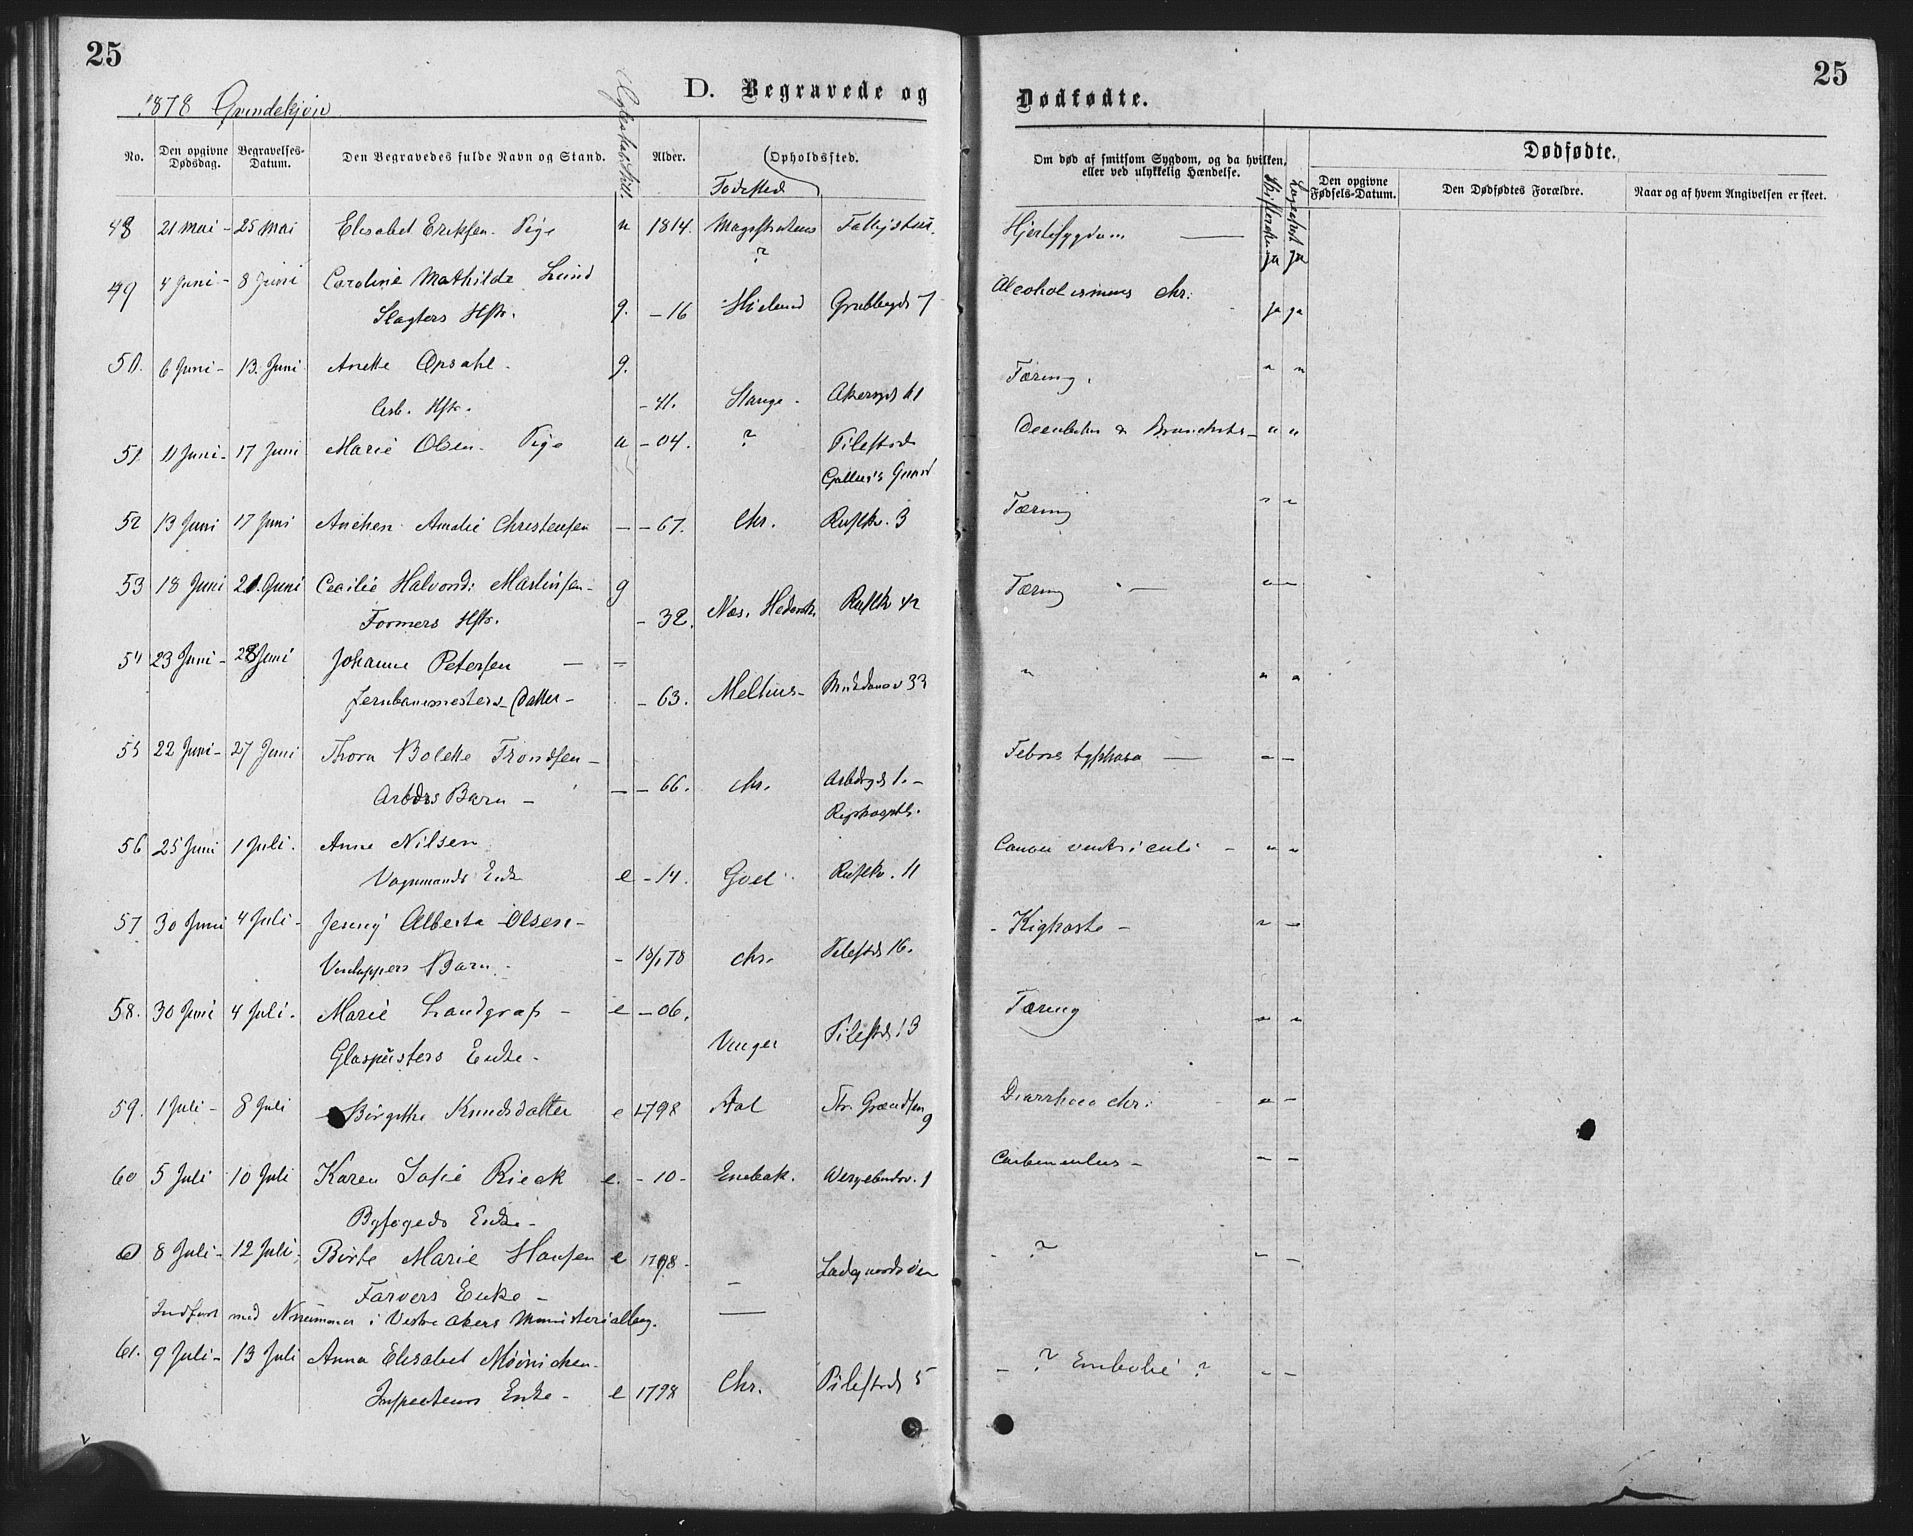 25
25
1878
D. Begravede og
Dødfødte.
No.
Den opgivne Dødsdag.
Begravelses-Datum.
Den Begravedes fulde Navn og Stand.
Alder.
Opholdssted.
Fødested
Om død af smitsom Sygdom, og da hvilken, eller ved ulykkelig Hændelse.
Dødfødte.
Den opgivne Fødsels-Datum.
Den Dødfødtes Forældre.
Naar og af hvem Angivelsen er skeet.
48 21 Mai - 25 Mai Elisabet Eriksen. Pige u 1814.
?
Ja Ja
49 4 Juni - 8 Juni Caroline Mathilde Lund Alcoholismus chr.
Slagters Hstr. g. - 16 Ja ja
50. 6 Juni - 13. Juni Anette Opsahl. g. Tæring. " "
Arb. Hstr. - 41. Stange -
51 11 Juni - 17 Juni Marie Olsen. Pige u - 04. ? Pilestræd " "
52 13 Juni 17 Juni Amalie Christensen - - 67. Chr. Rustkr. 3 Tæring " -
53 18 Juni 21. Juni Cecilie Halvorsd: Martinsen - g Tæring - " -
Formers Hstr. - 32. Næs. Hedemk. Rustkr 42
54 23 Juni - 28 Juni Johanne Petersen - - "
Jernbanemesters Datter - - 63. Melhus - 33 " "
55 22 Juni - 27 Juni Thora Bolette Trondsen - Febris typhosa - - -
Arbdrs Barn - - - 66. chr. 1. -
Rigshospitl.
56 25 Juni 1 Juli. Anne Nilsen Cancer ventriculi - " "
Vognmands Enke e - 14. Goel Rustkr. 11
57 30 Juni 4 Juli - Jenny Alberta Olsen - - Kighoste - " -
Barn - - 18/1 78 chr. Pilestrd 16.
58. 30 Juni 4 Juli. Marie Landgraf - e - 06. Tæring " "
Glaspusters Enke - Vinger Pilestrd 13
59. 1 Juli - 8 Juli Birgitte Knudsdatter e 1798 Aal 9 Diarrhoea chr. " -
60 5 Juli 10 Juli Karen Sofie Rieck e. - 10 - Enebak. Wergelandsv. 1 Carbunculus - - -
Byfogeds Enke -
61 8 Juli - 12 Juli - Birte Marie Hansen e 1798 - - ? - -
Farvers Enke - - Ladegaardsøen
Indført med Nummer i Vestre Akers Ministerialbog. -
61. 9 Juli - 13 Juli Anna Elisabet - ? Embolie ? - -
Inspecteurs Enke - e 1798 Chr. Pilestræd 5